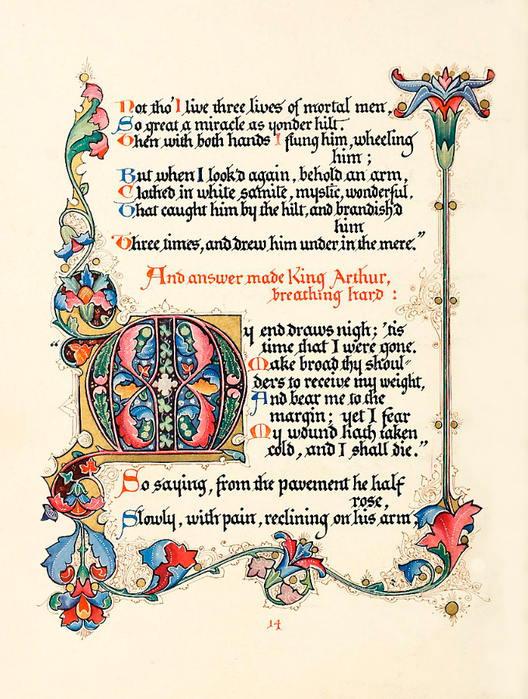 Not tho' I live three lives of mortal men,
So great a miracle as yonder hilt.
Then with both hands I flung him, wheeling
him;
But when I look'd again, behold an arm,
Clothed in white samite, mystic, wonderful,
That caught him by the hilt, and brandish'd
him
Three times, and drew him under in the mere."
And answer made King Arthur,
breathing hard:
"My end draws nigh; 'tis
time that I were gone.
Make broad thy shoul-
ders to receive my weight,
And bear me to the
margin; yet I fear
My wound hath taken
cold, and I shall die."
So saying, from the pavement he half
rose,
Slowly, with pain, reclining on his arm,
14